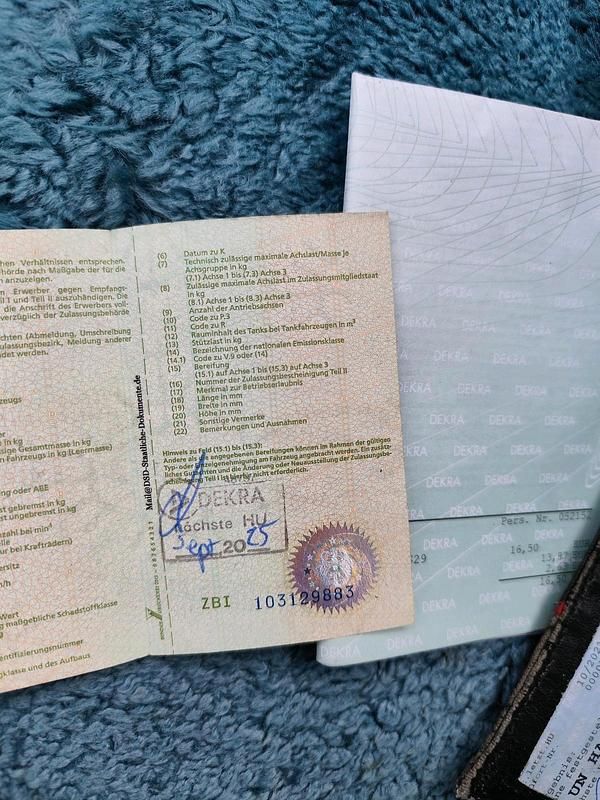 hen Verhältnissen entsprechen.
hörde nach Maßgabe der für die
n anzuzeigen.
en Erwerber gegen Empfangs-
il I und Teil II auszuhändigen. Die
die Anschrift des Erwerbers voll-
verzüglich der Zulassungsbehörde
chten (Abmeldung, Umschreibung
ulassungsbezirk, Meldung anderer
ndet werden.
zeugs
e in kg
sige Gesamtmasse in kg
Fahrzeugs in kg (Leermasse)
ung oder ABE
st gebremst in kg
st ungebremst in kg
nzahl bei min¹
lle
ur bei Krafträdern)
ersitz
n/h
Wert
g maßgebliche Schadstoffklasse
entifizierungsnummer
gklasse und des Aufbaus
Mail@DSD-Staatliche-Dokumente.de
(6) Datum zu K
(7) Technisch zulässige maximale Achslast/Masse je
Achsgruppe in kg
(7.1) Achse 1 bis (7.3) Achse 3
(8) Zulässige maximale Achslast im Zulassungsmitgliedstaat
in kg
(8.1) Achse 1 bis (8.3) Achse 3
(9) Anzahl der Antriebsachsen
(10) Code zu P.3
(11) Code zu R
(12) Rauminhalt des Tanks bei Tankfahrzeugen in m³
(13) Stützlast in kg
(14) Bezeichnung der nationalen Emissionsklasse
(14.1) Code zu V.9 oder (14)
(15) Bereifung
(15.1) auf Achse 1 bis (15.3) auf Achse 3
(16) Nummer der Zulassungsbescheinigung Teil II
(17) Merkmal zur Betriebserlaubnis
(18) Länge in mm
(19) Breite in mm
(20) Höhe in mm
(21) Sonstige Vermerke
(22) Bemerkungen und Ausnahmen
Hinweis zu Feld (15.1) bis (15.3):
Andere als die angegebenen Bereifungen können im Rahmen der gültigen
Typ- oder Einzelgenehmigung am Fahrzeug angebracht werden. Ein zusätz-
liches Gutachten und die Änderung oder Neuausstellung der Zulassungsbe-
scheinigung Teil I ist hierfür nicht erforderlich.
DEKRA
Nächste HU
Sept 2025
ZBI 103129883
DEKRA
Pers. Nr.
16,50
829
10/202
letzt.HU
gebnis:
UN HA